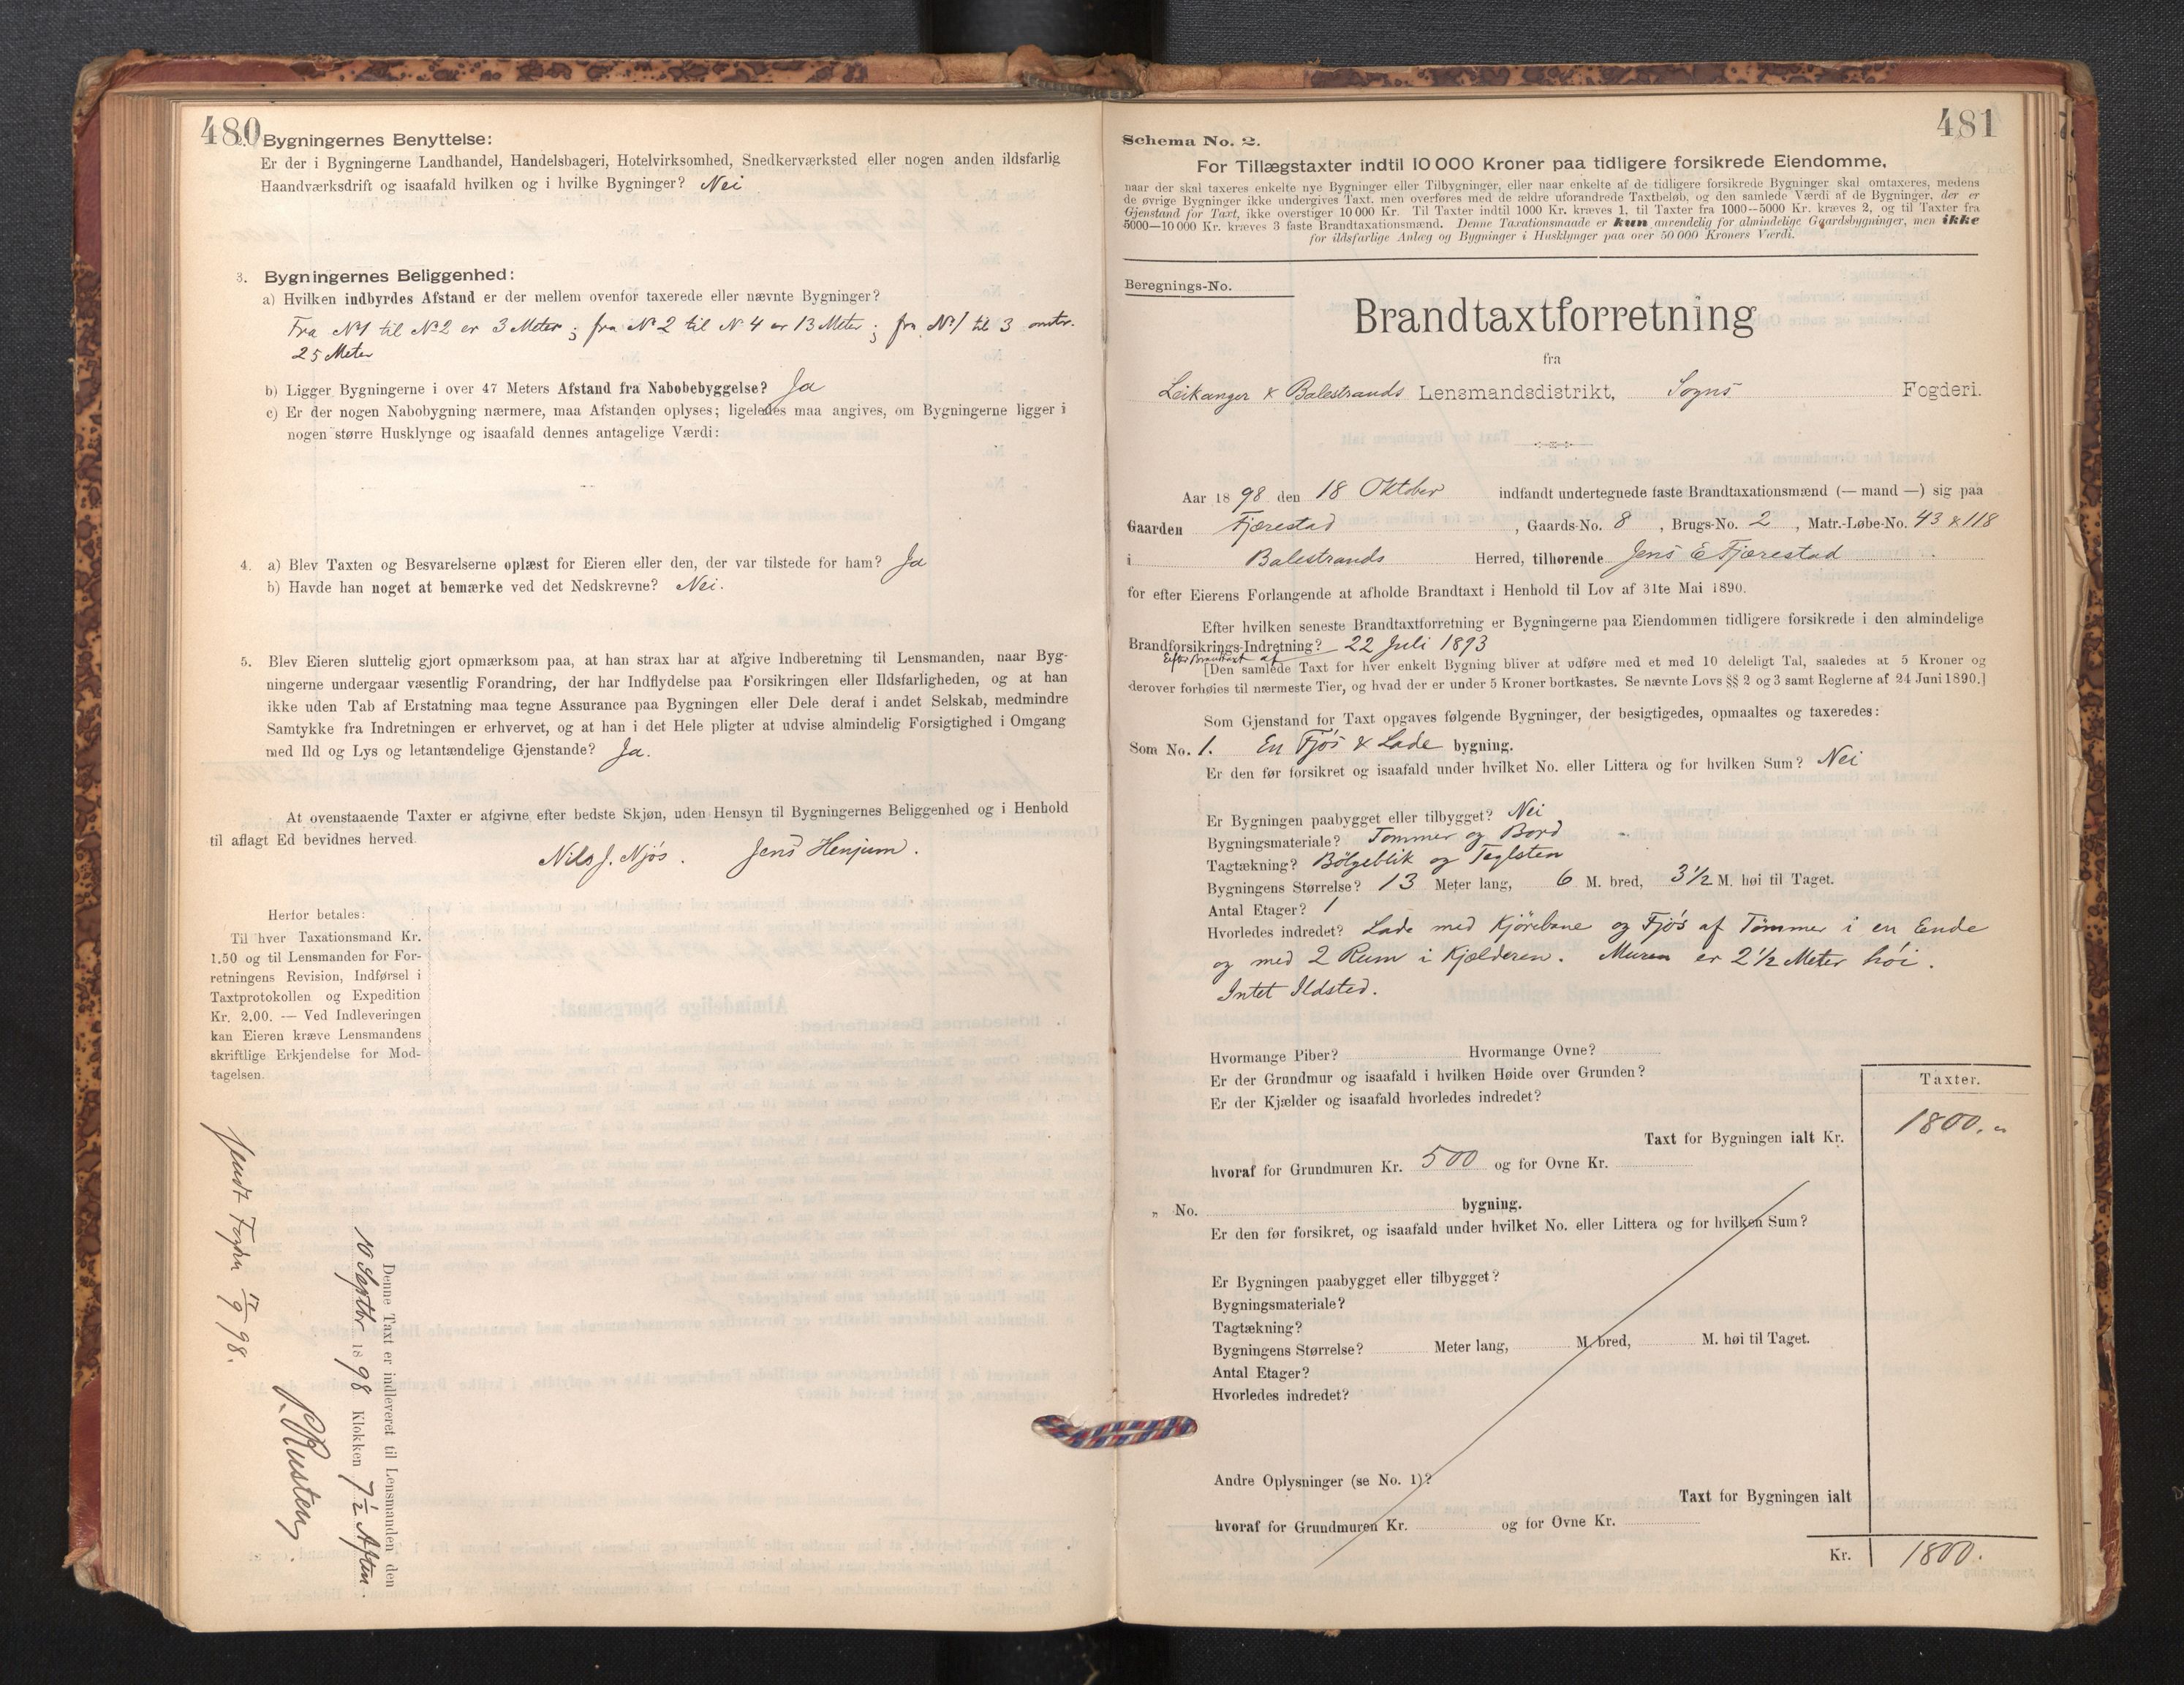 480
Bygningernes Benyttelse:
Er der i Bygningerne Landhandel, Handelsbageri, Hotelvirksomhed, Snedkerværksted eller nogen anden ildsfarlig
Haandværksdrift og isaafald hvilken og i hvilke Bygninger? Nei
3. Bygningernes Beliggenhed:
a) Hvilken indbyrdes Afstand er der mellem ovenfor taxerede eller nævnte Bygninger?
Fra No 1 til No 2 er 3 Meter; fra No 2 til N. 4 er 13 Meter; fra No 1 til 3 omtr.
25 Meter
b) Ligger Bygningerne i over 47 Meters Afstand fra Nabobebyggelse? Ja
c) Er der nogen Nabobygning nærmere, maa Afstanden oplyses; ligeledes maa angives, om Bygningerne ligger i
nogen større Husklynge og isaafald dennes antagelige Værdi:
4. a) Blev Taxten og Besvarelserne oplæst for Eieren eller den, der var tilstede for ham? Ja
b) Havde han noget at bemærke ved det Nedskrevne? Nei.
5. Blev Eieren sluttelig gjort opmærksom paa, at han strax har at afgive Indberetning til Lensmanden, naar Byg-
ningerne undergaar væsentlig Forandring, der har Indflydelse paa Forsikringen eller Ildsfarligheden, og at han
ikke uden Tab af Erstatning maa tegne Assurance paa Bygningen eller Dele deraf i andet Selskab, medmindre
Samtykke fra Indretningen er erhvervet, og at han i det Hele pligter at udvise almindelig Forsigtighed i Omgang
med Ild og Lys og letantændelige Gjenstande? Ja.
At ovenstaaende Taxter er afgivne efter bedste Skjøn, uden Hensyn til Bygningernes Beliggenhed og i Henhold
til aflagt Ed bevidnes herved.
Nils J. Njøs. Jens Henjum.
Herfor betales:
Til hver Taxationsmand Kr.
1.50 og til Lensmanden for For-
retningens Revision, Indførsel i
Taxtprotokollen og Expedition
Kr. 2.00. — Ved Indleveringen
kan Eieren kræve Lensmandens
skriftlige Erkjendelse for Mod-
tagelsen.
Denne Taxt er indleveret til Lensmanden den
10 Septbr 1898 Klokken 7 1/2 Aften
P. Rusten
Sendt Fogden 17/9 98.
481
Schema No. 2.
For Tillægstaxter indtil 10 000 Kroner paa tidligere forsikrede Eiendomme,
naar der skal taxeres enkelte nye Bygninger eller Tilbygninger, eller naar enkelte af de tidligere forsikrede Bygninger skal omtaxeres, medens
de øvrige Bygninger ikke undergives Taxt, men overføres med de ældre uforandrede Taxtbeløb, og den samlede Værdi af de Bygninger, der er
Gjenstand for Taxt, ikke overstiger 10 000 Kr. Til Taxter indtil 1000 Kr. kræves 1, til Taxter fra 1000—5000 Kr. kræves 2, og til Taxter fra
5000—10 000 Kr. kræves 3 faste Brandtaxationsmænd. Denne Taxationsmaade er kun anvendelig for almindelige Gaardsbygninger, men ikke
for ildsfarlige Anlæg og Bygninger i Husklynger paa over 50 000 Kroners Værdi.
Beregnings-No.
Brandtaxtforretning
fra
Leikanger & Balestrands Lensmandsdistrikt, Sogns Fogderi.
Aar 1898 den 18 Oktober indfandt undertegnede faste Brandtaxationsmænd (— mand —) sig paa
Gaarden Fjærestad, Gaards-No. 8, Brugs-No. 2, Matr.-Løbe-No. 43 & 118
i Balestrands Herred, tilhørende Jens E Fjærestad
for efter Eierens Forlangende at afholde Brandtaxt i Henhold til Lov af 31te Mai 1890.
Efter hvilken seneste Brandtaxtforretning er Bygningerne paa Eiendommen tidligere forsikrede i den almindelige
Brandforsikrings-Indretning? 22 Juli 1893
Efter Brandtaxt af
[Den samlede Taxt for hver enkelt Bygning bliver at udføre med et med 10 deleligt Tal, saaledes at 5 Kroner og
derover forhøies til nærmeste Tier, og hvad der er under 5 Kroner bortkastes. Se nævnte Lovs §§ 2 og 3 samt Reglerne af 24 Juni 1890.]
Som Gjenstand for Taxt opgaves følgende Bygninger, der besigtigedes, opmaaltes og taxeredes:
Som No. 1. En Fjøs & Lade bygning.
Er den før forsikret og isaafald under hvilket No. eller Littera og for hvilken Sum? Nei
Er Bygningen paabygget eller tilbygget? Nei
Bygningsmateriale? Tømmer og Bord
Tagtækning? Bölgeblik og Teglsten
Bygningens Størrelse? 13 Meter lang, 6 M. bred, 3 1/2 M. høi til Taget.
Antal Etager? 1
Hvorledes indredet? Lade med Kjörebane og Fjøs af Tømmer i en Ende
og med 2 Rum i Kjælderen. Muren er 2 1/2 Meter høi.
Intet Ildsted.
Hvormange Piber? Hvormange Ovne?
Er der Grundmur og isaafald i hvilken Høide over Grunden?
Er der Kjælder og isaafald hvorledes indredet?
Taxter.
Taxt for Bygningen ialt Kr. 1800.
hvoraf for Grundmuren Kr. 500 og for Ovne Kr.
„ No. bygning.
Er den før forsikret, og isaafald under hvilket No. eller Littera og for hvilken Sum?
Er Bygningen paabygget eller tilbygget?
Bygningsmateriale?
Tagtækning?
Bygningens Størrelse? Meter lang, M. bred, M. høi til Taget.
Antal Etager?
Hvorledes indredet?
Andre Oplysninger (se No. 1)?
Taxt for Bygningen ialt
hvoraf for Grundmuren Kr. og for Ovne Kr.
Kr. 1800.